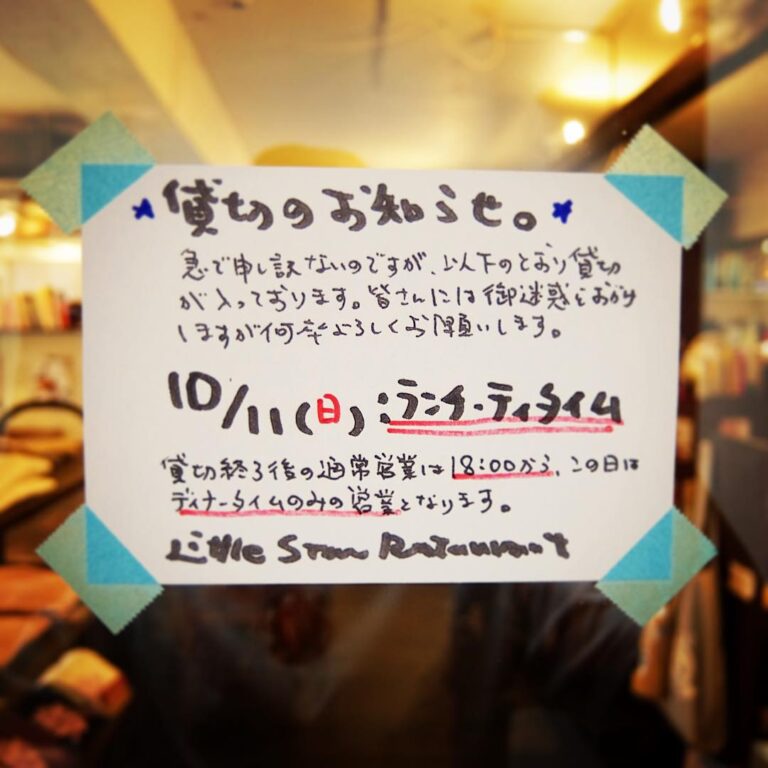 ★貸切のお知らせ。★
急で申し訳ないのですが、以下のとおり貸切
が入っております。皆さんには御迷惑をおかけ
しますが何卒よろしくお願いします。
10/11(日):ランチ・ティータイム
貸切終了後の通常営業は18:00から、この日は
ディナータイムのみの営業となります。
Little Star Restaurant